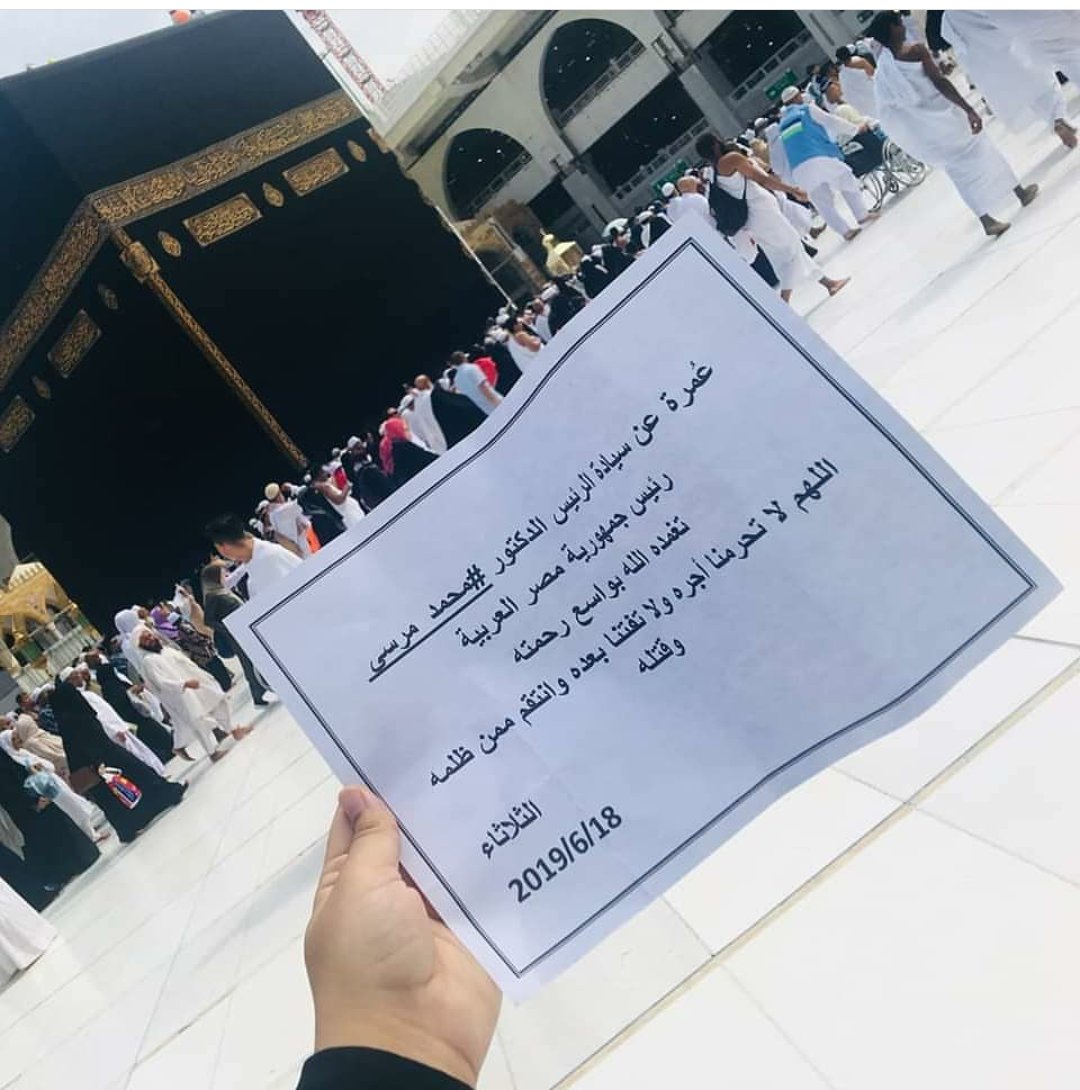 عُمرة عن سيادة الرئيس الدكتور #محمد مرسى
رئيس جمهورية مصر العربية
تغمده الله بواسع رحمته
اللهم لا تحرمنا أجره ولا تفتنا بعده وانتقم ممن ظلمه
وقتله
الثلاثاء
2019/6/18